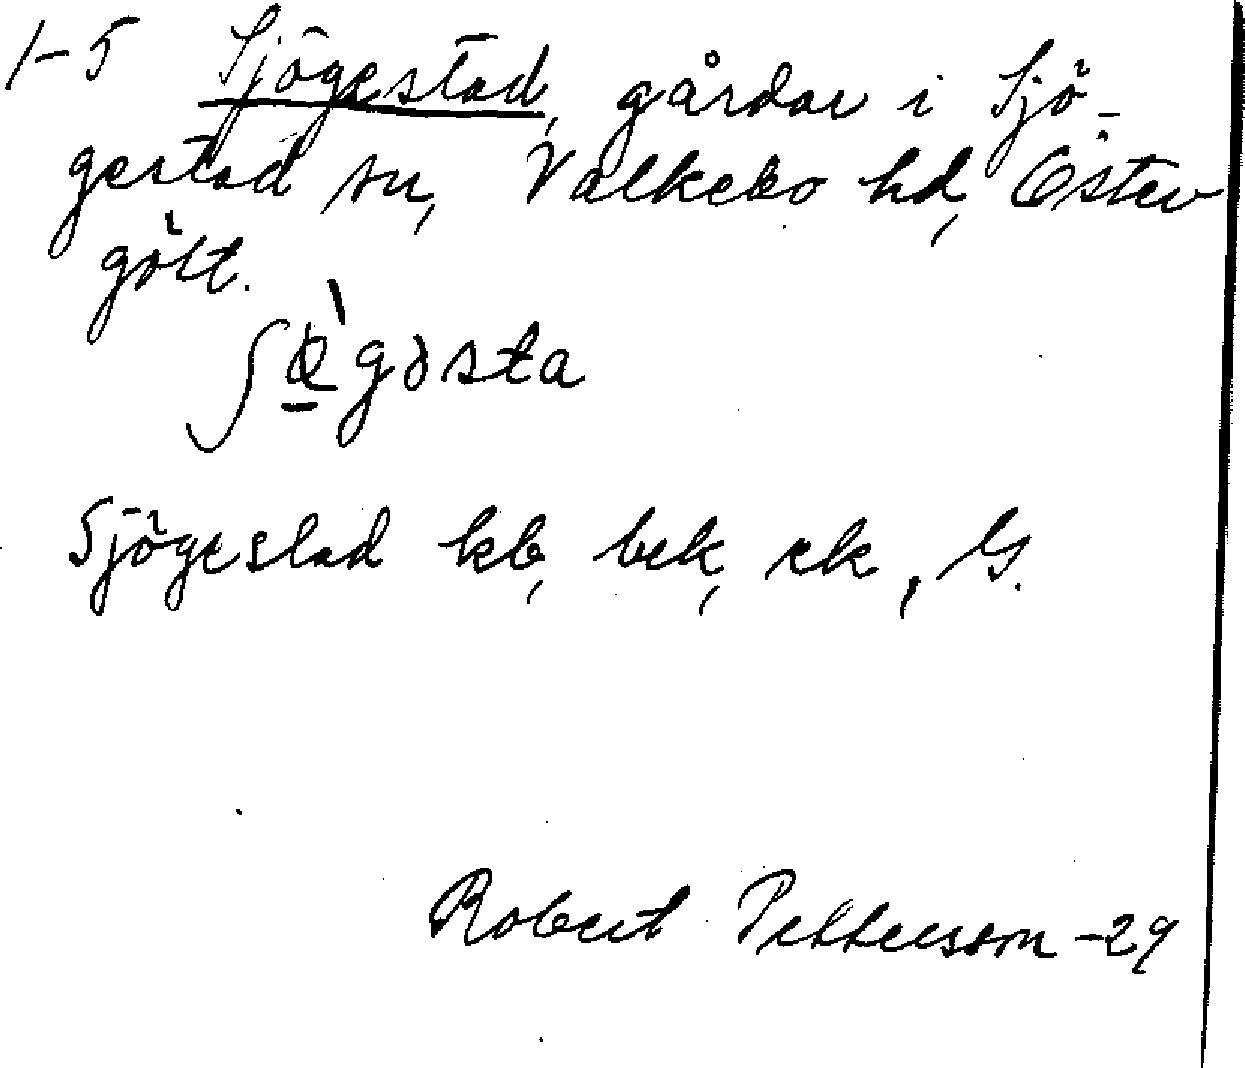 1-5 Sjögestad, gårdar i Sjö-
gestad sn, Valkebo hd, Öster
götl.
ʃœ̠̀gəsta
Sjögestad kb, bek, ek, G.
Robert Pettersson -29